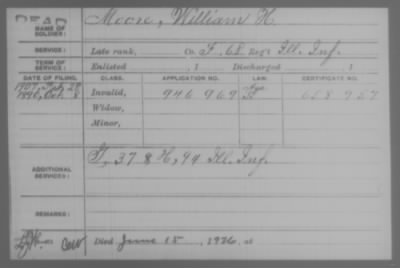 DEAD
NAME OF SOLDIER: Moore, William H.
SERVICE: Late rank, Co. F, 61 Reg't Ill. Inf.
TERM OF SERVICE: Enlisted , 1 Discharged , 1
DATE OF FILING. CLASS. APPLICATION NO. LAW. CERTIFICATE NO.
1907,
1890, Oct. 8 Invalid, 946 969
Widow,
Minor,
ADDITIONAL SERVICES: 37 & H, 99 Ill. Inf.
REMARKS:
Died June 15, 1926, at